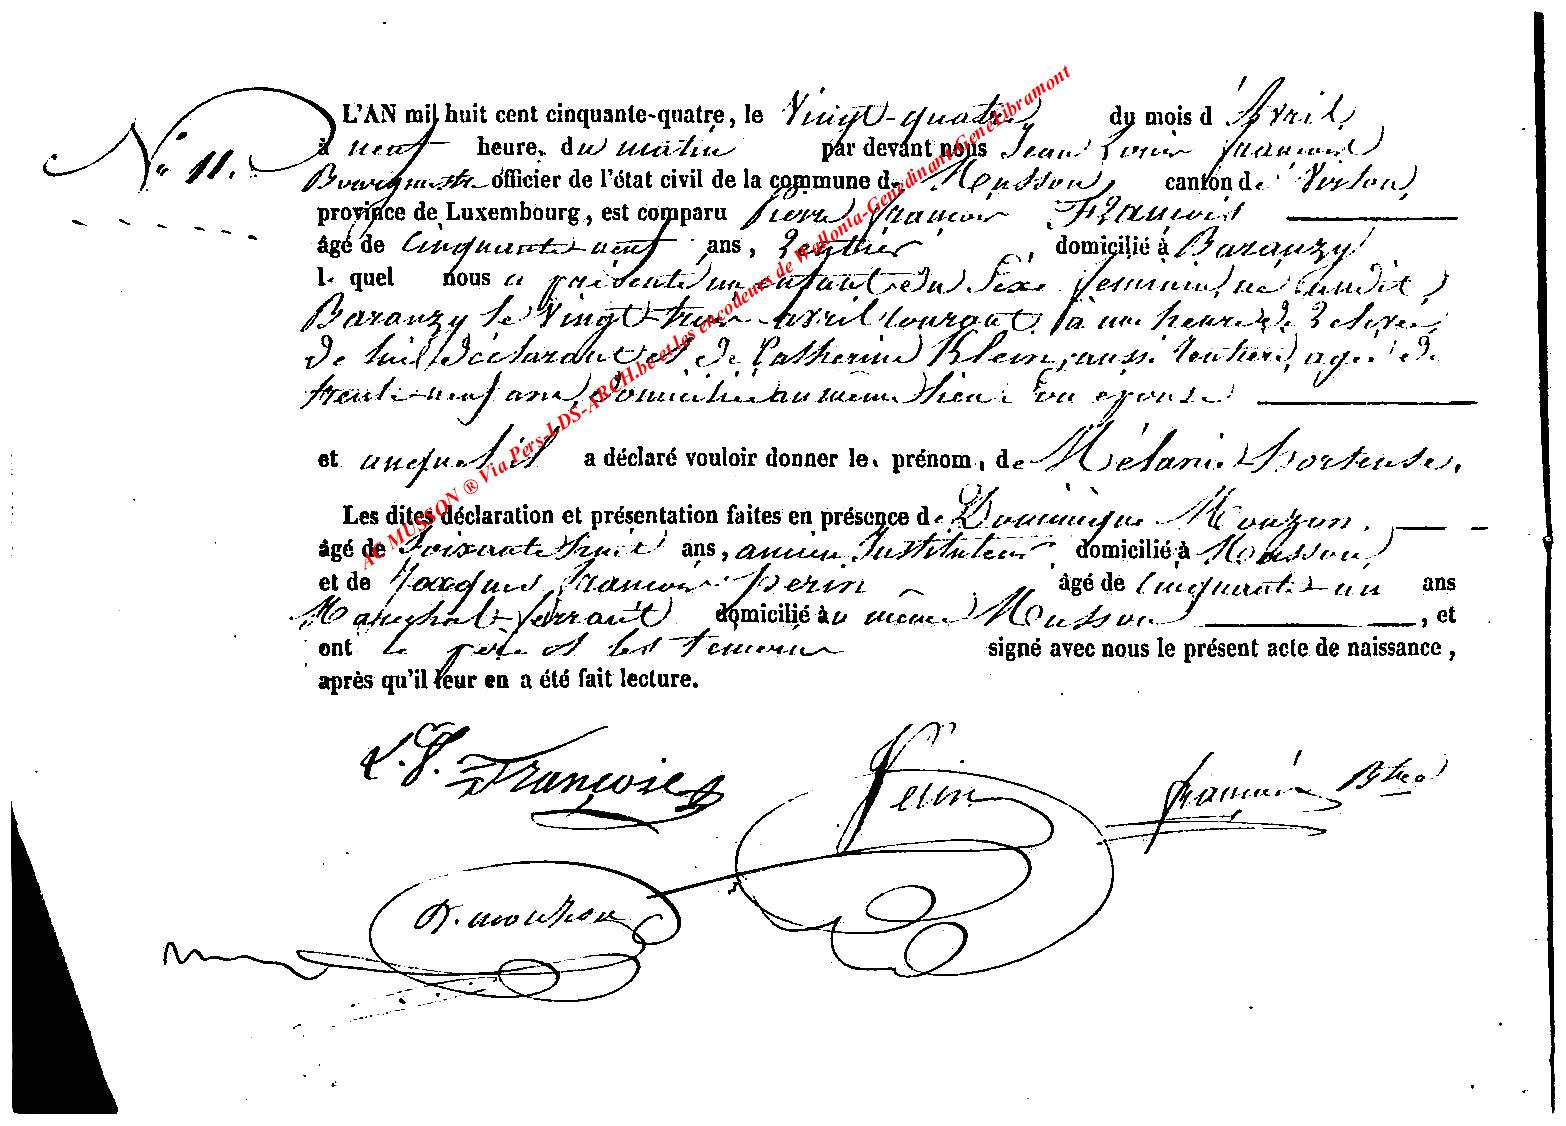 L'AN mil huit cent cinquante-quatre, le Vingt-quatre du mois d'Avril,
No 11.
à neuf heure. du matin par devant nous Jean Louis François
Bourgmestre officier de l'état civil de la commune de Musson, canton de Virton,
province de Luxembourg, est comparu Pierre François François
âgé de Cinquante-neuf ans, Rentier domicilié à Baranzy
lequel nous a présenté un enfant du Sexe feminin, né audit
Baranzy le Vingt-trois avril courant, à une heure de relevée,
de lui déclarant et de Catherine Klein, aussi rentière, agée de
trente-neuf ans, domiciliée au même lieu Son épouse
et auquel il a déclaré vouloir donner le. prénom. de Mélanie Hortense.
Les dites déclaration et présentation faites en présence de Dominique Mouzon.
âgé de Soixante ans, ancien Instituteur domicilié à Musson,
et de Jacques François Perin âgé de Cinquante-un ans
Marechal-ferrant domicilié au même Musson, et
ont le père et les temoins signé avec nous le présent acte de naissance,
après qu'il leur en a été fait lecture.
François
Perin
François Btre
D. mouzon
AC MUSSON ® Via Pers-LDS-ARCH.be et les encodeurs de Wallonia-Genedinant-GeneLibramont